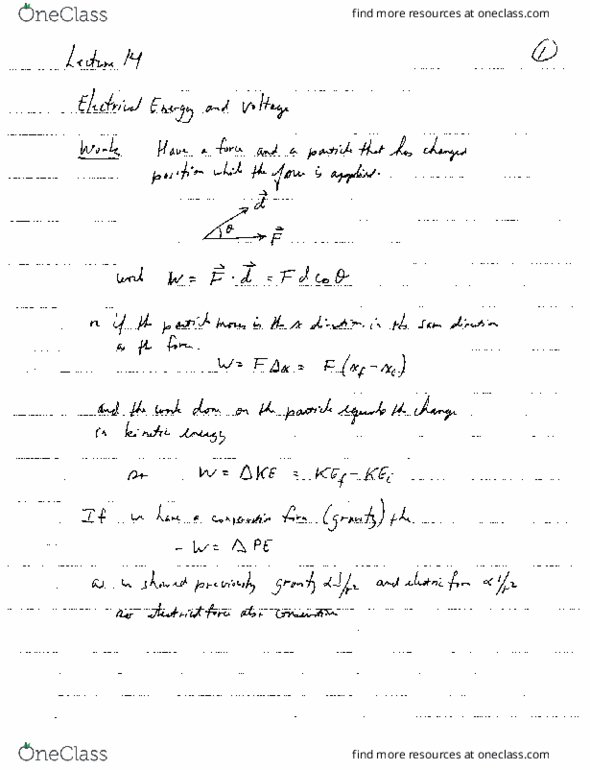 OneClass
find more resources at oneclass.com
Lecture 14
1
Electrical Energy and Voltage
Work Have a force and a particle that has changed
position while the force is applied.
d
θ
F
work W = F · d = F d cos θ
or if the particle moves in the x direction in the same direction
as the force.
W = F Δx = F (xf - xi)
and the work done on the particle equals the change
in kinetic energy
so W = ΔKE = KEf - KEi
If we have a conservative force (gravity) the
- W = Δ PE
as we showed previously gravity α 1/r2 and electric force α 1/r2
so electrical force also conservative
OneClass
find more resources at oneclass.com